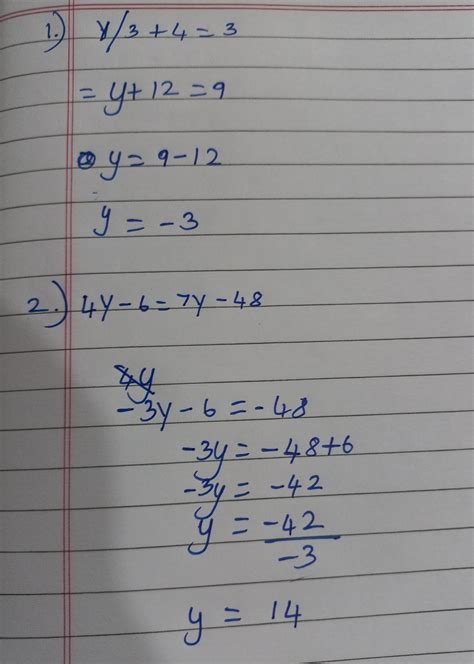 1.) Y/3 + 4 = 3
= y + 12 = 9
y = 9 - 12
y = -3
2.) 4Y - 6 = 7Y - 48
4y
-3y - 6 = -48
-3y = -48 + 6
-3y = -42
y = -42/-3
y = 14